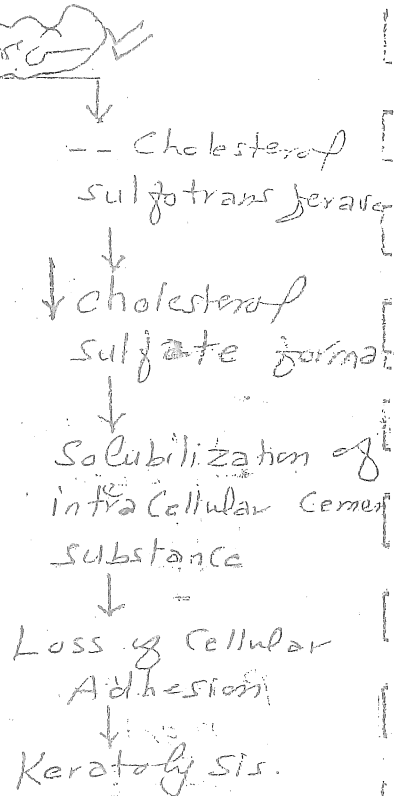 -- Cholesterol
sulfotransferase
↓ cholesterol
sulfate forma
Solubilization of
intracellular Cemen
substance
Loss of cellular
Adhesion
Keratolysis.